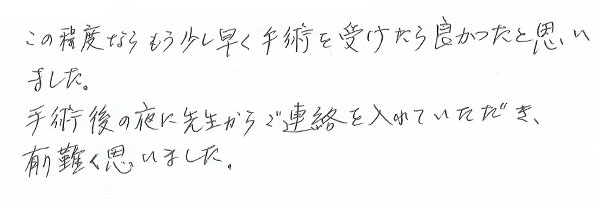 この程度ならもう少し早く手術を受けたら良かったと思い
ました。
手術後の夜に先生からご連絡を入れていただき、
有難く思いました。